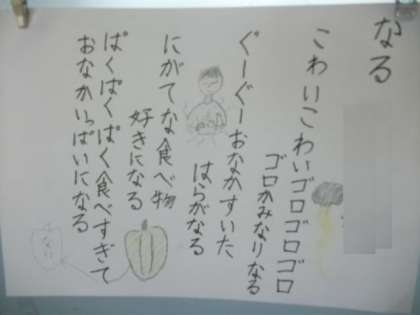 なる
こわいこわいゴロゴロゴロ
ゴロかみなりなる
ぐーぐーおなかすいた
はらがなる
にがてな食べ物
好きになる
ぱくぱくぱく食べすぎて
おなかいっぱいになる